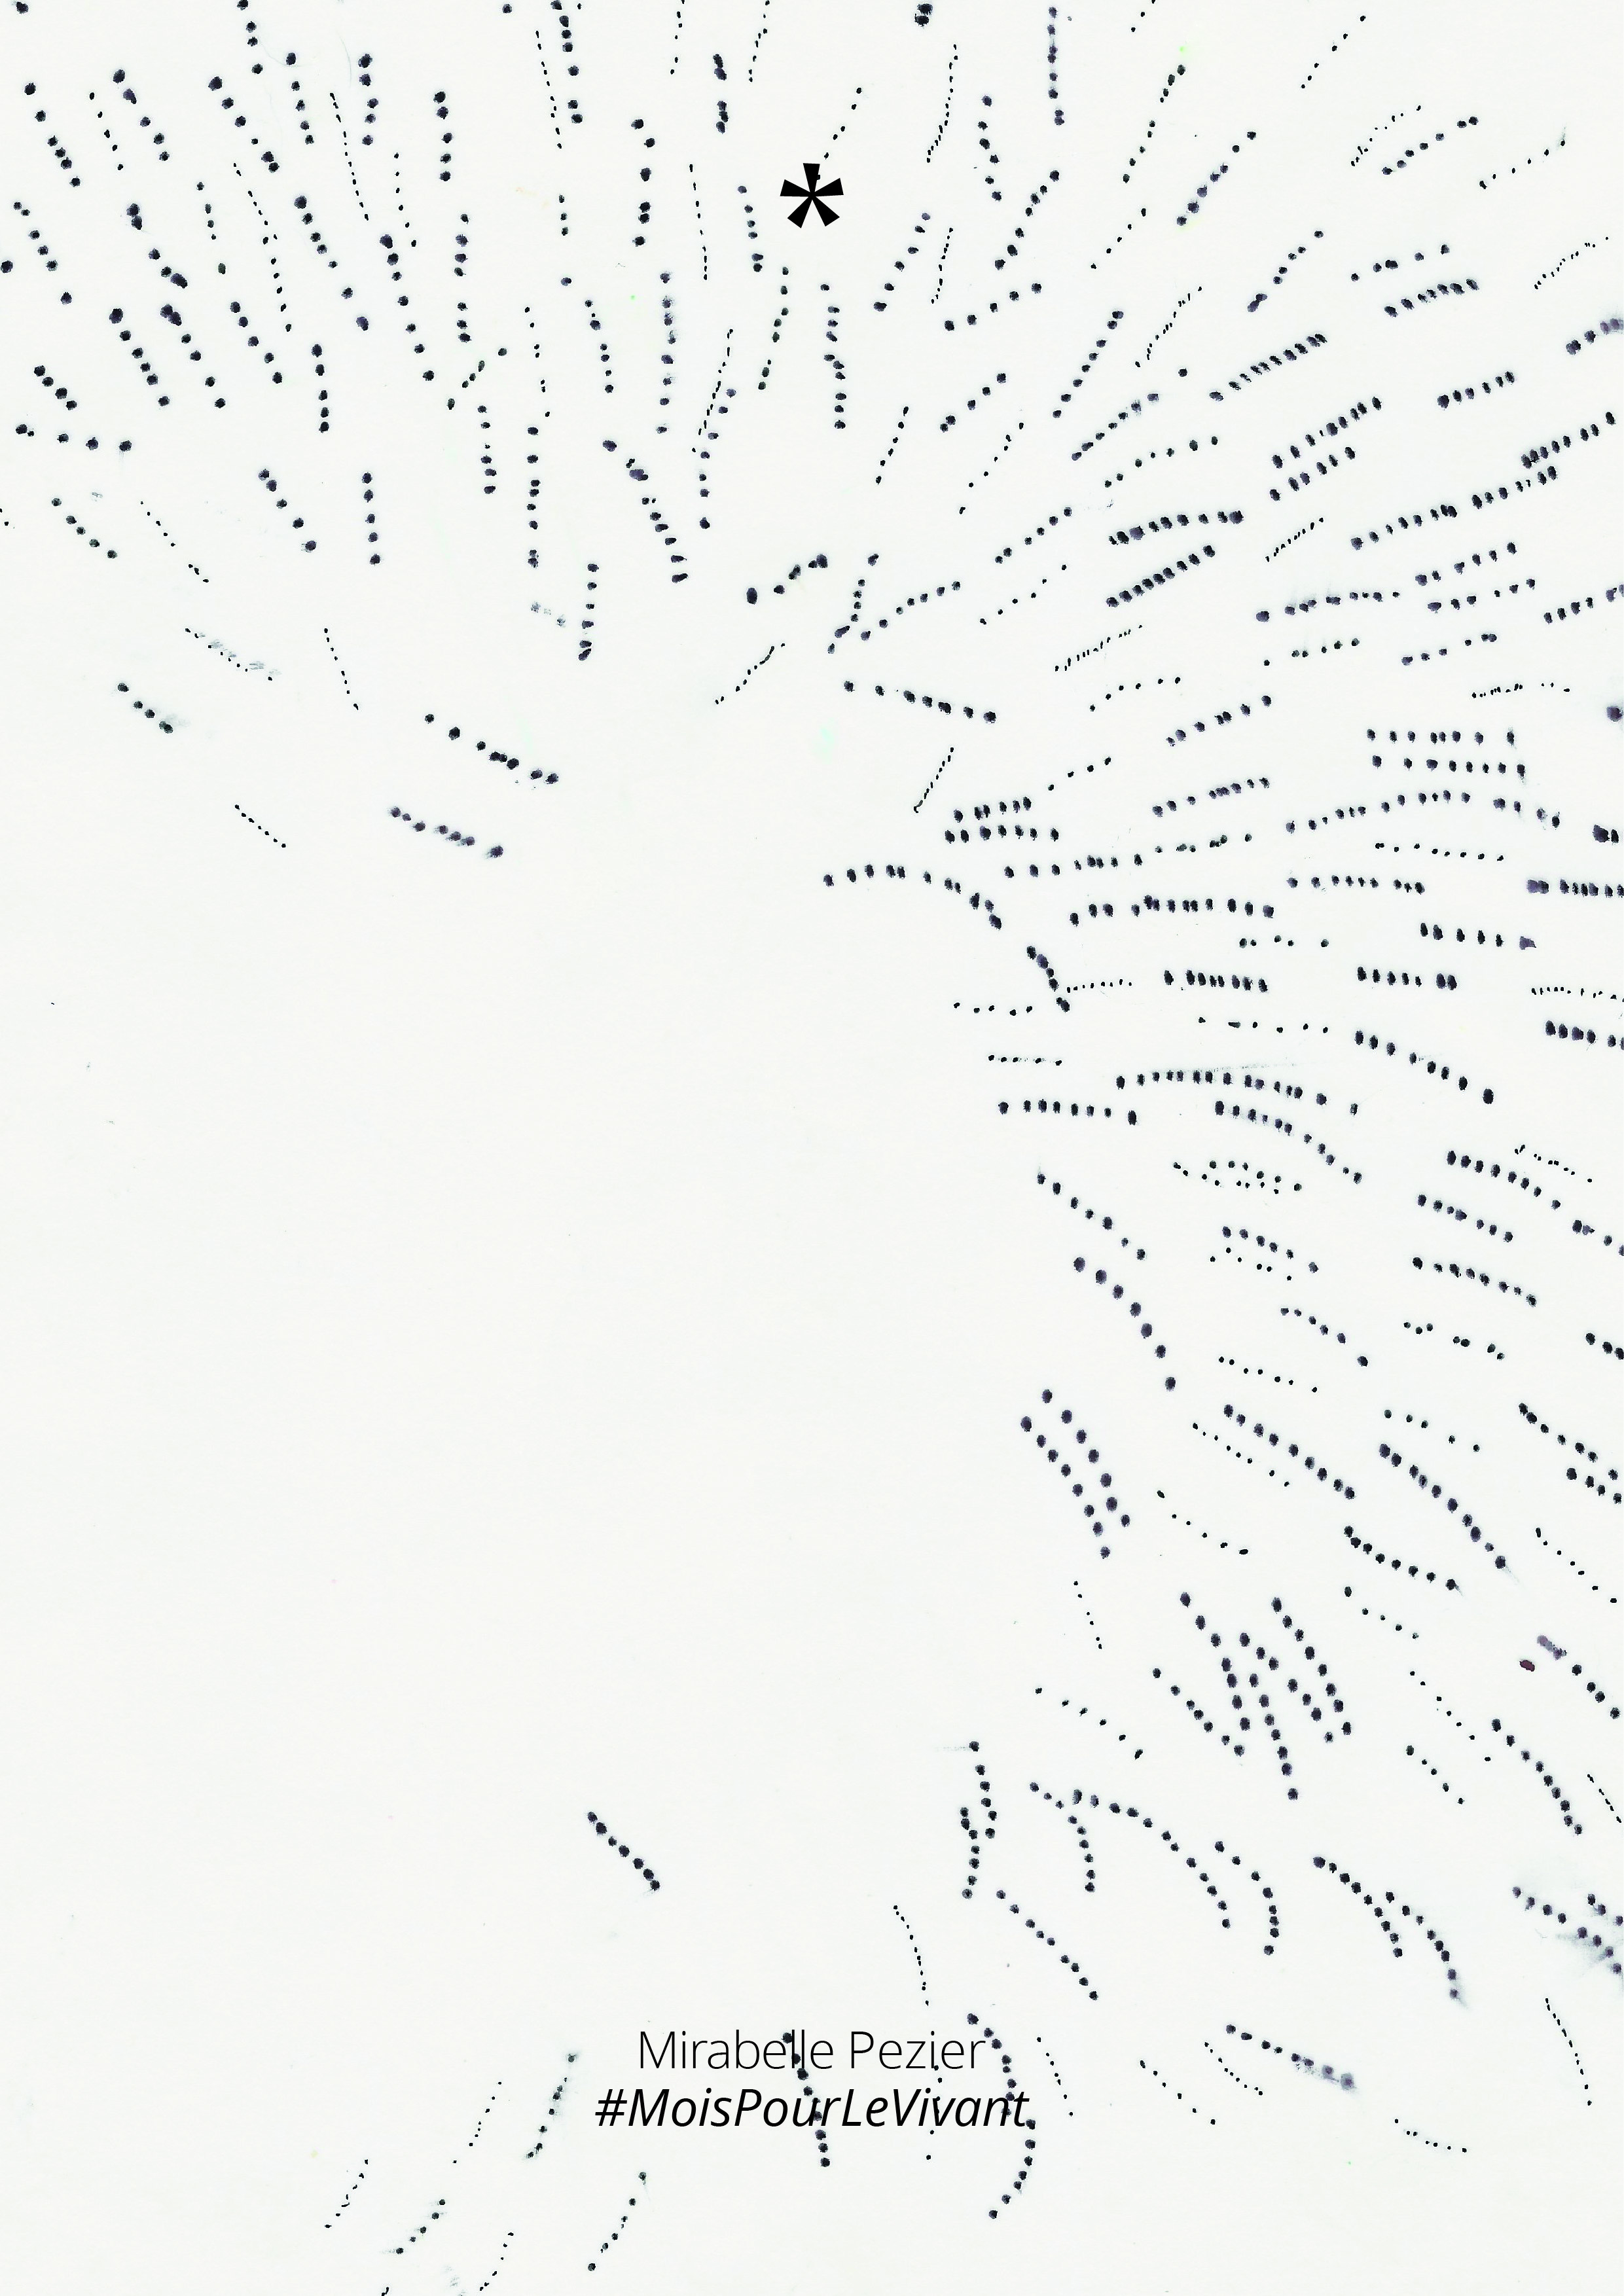 *
Mirabelle Pezier
#MoisPourLeVivant